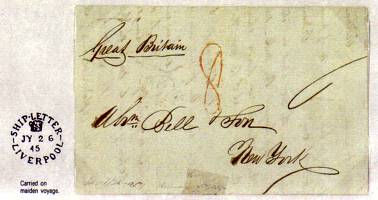 Great Britain
8
Abm. Bell & Son
New York
SHIP-LETTER
JY 26
45
LIVERPOOL
Carried on
maiden voyage.